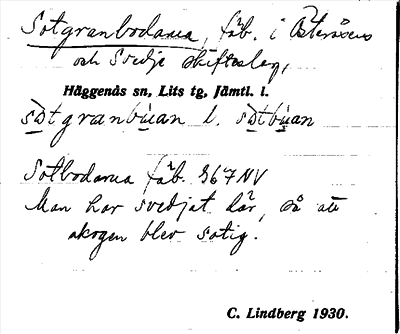 Sotgranbodarna, fäb. i Österåsens
och Svedje skifteslag,
Häggenås sn, Lits tg, Jämtl. l.
sɔtgranbuan l. sɔtbuan
Sotbodarna fäb. 367 NV
Man har svedjat där, så att
skogen blev sotig.
C. Lindberg 1930.